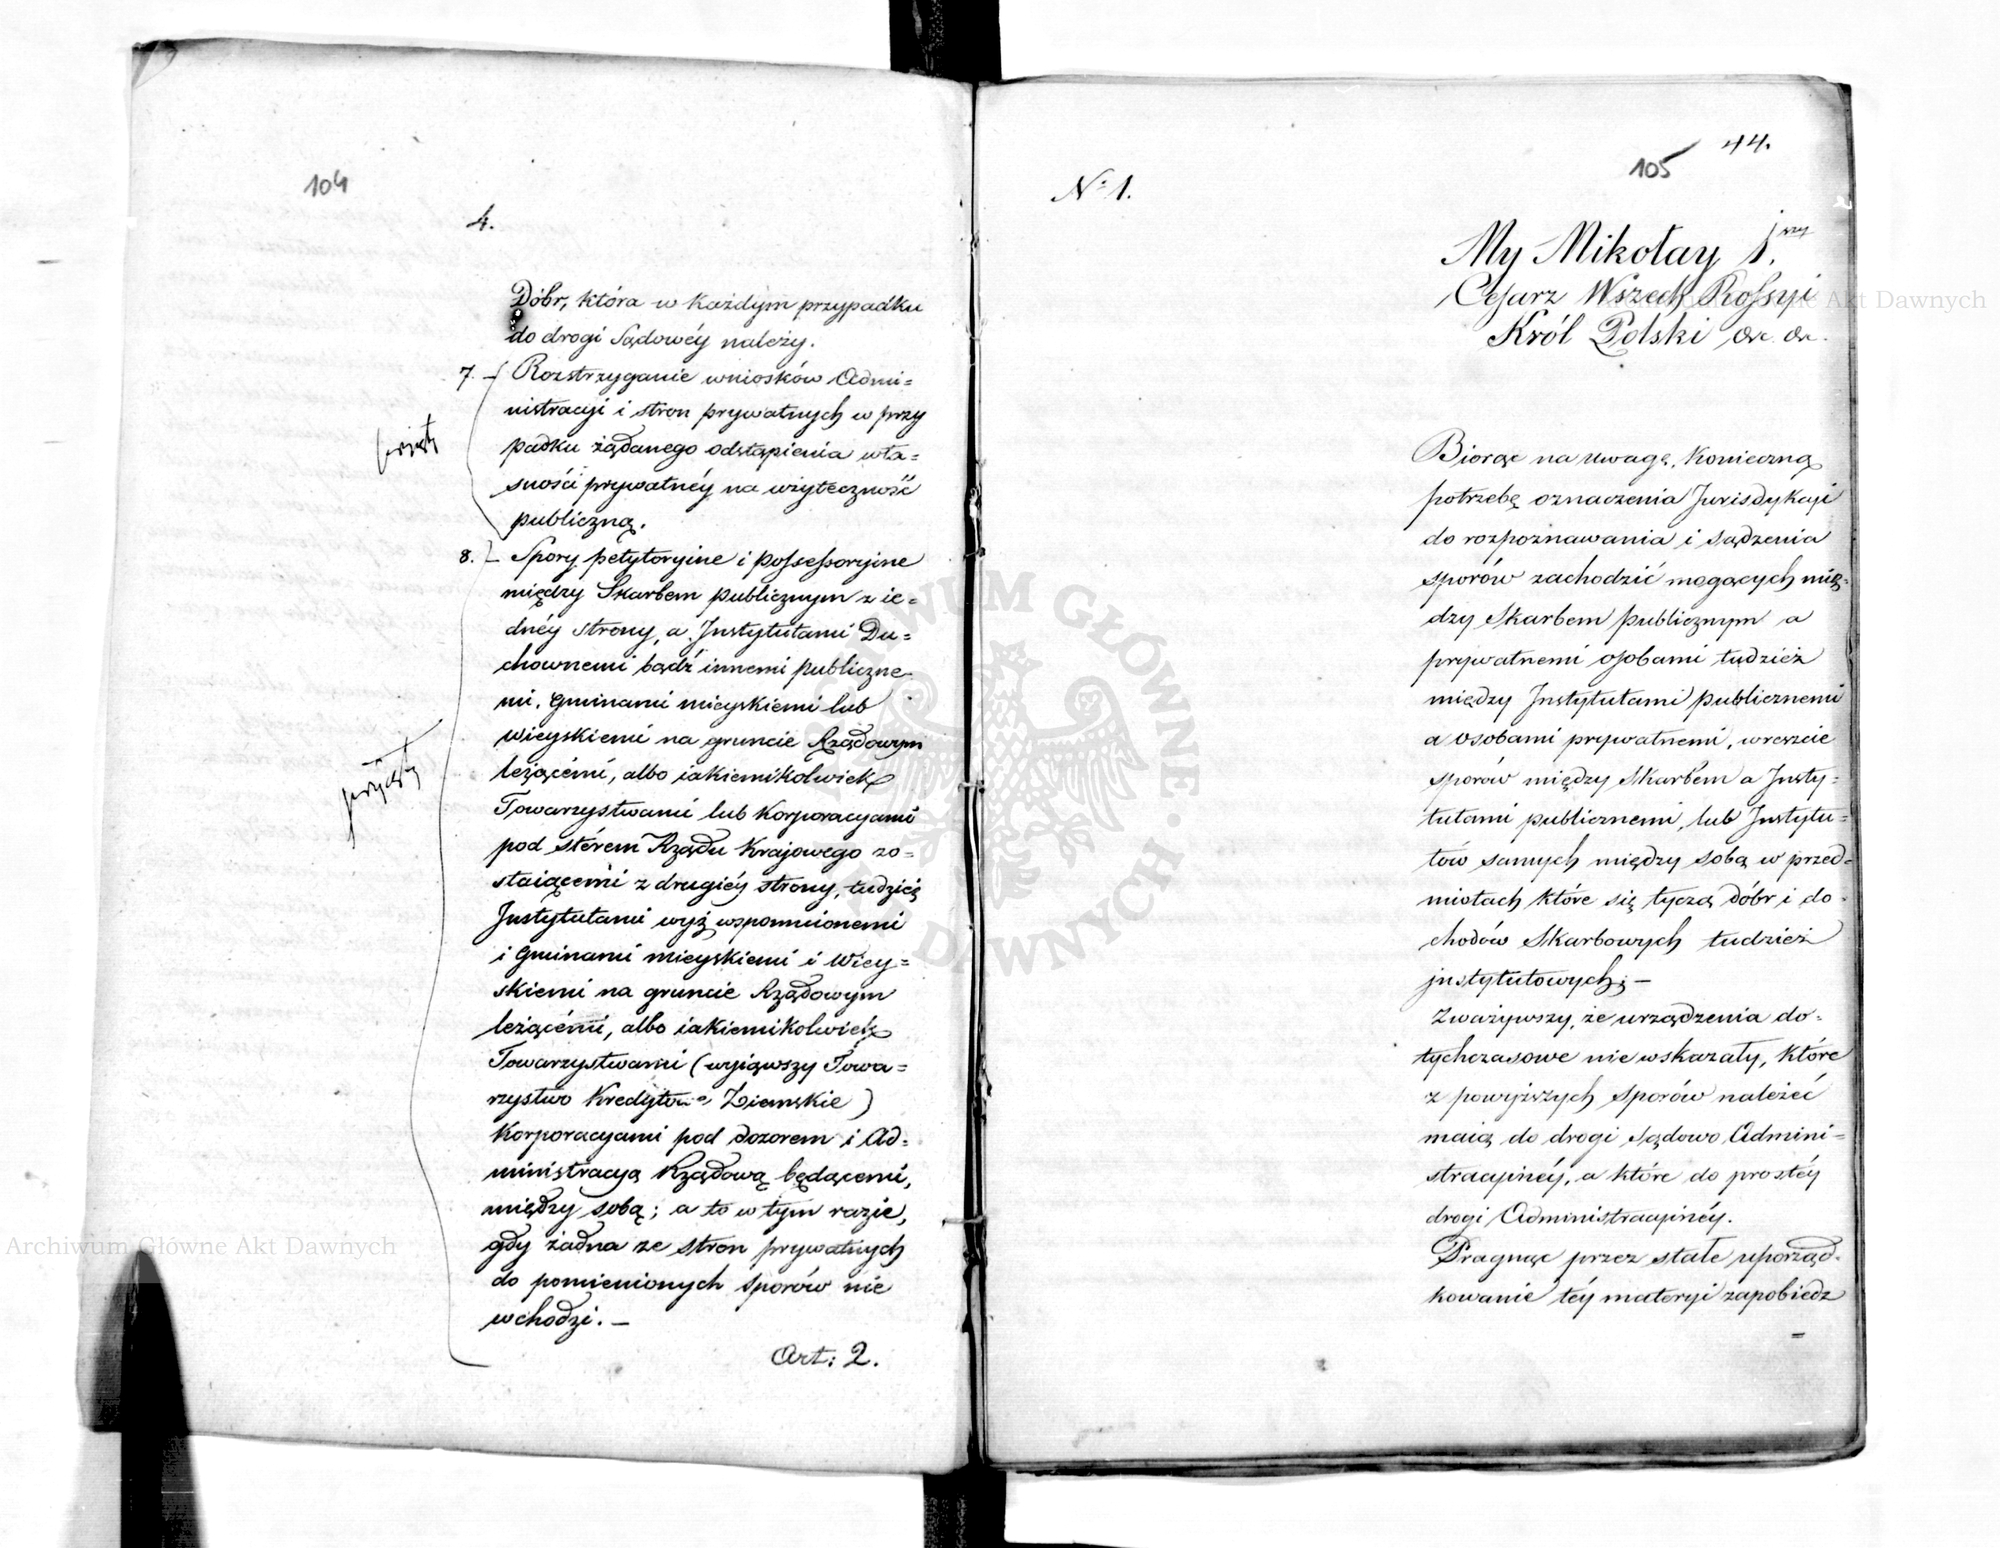 104
4.
Dóbr, która w każdym przypadku
do drogi Sądowéy należy.
7. – Rozstrzyganie wniosków Admi=
nistracyi i stron prywatnych w przy
padku żądanego odstąpienia wła=
sności prywatnéy na użyteczność
publiczną.
8. – Spory petytoryine i possessoryine
między Skarbem publicznym z ie=
dnéy strony, a Instytutami Du=
chownemi bądź innemi publiczne
mi, Gminami mieyskiemi lub
wieyskiemi na gruncie Rządowym
leżącémi, albo iakiemikolwiek
Towarzystwami lub Korporacyami
pod stérem Rządu Krajowego zo=
staiącemi z drugiéy strony, tudzież
Instytutami wyż wspomnionemi
i Gminami mieyskiemi i Wiey=
skiemi na gruncie Rządowym
leżącémi, albo iakiemikolwiek
Towarzystwami (wyiąwszy Towa=
rzystwo Kredytowe Ziemskie)
Korporacyami pod dozorem i Ad=
ministracyą Rządową będącemi,
między sobą; a to w tym razie,
gdy żadna ze stron prywatnych
do pomienionych sporów nie
wchodzi. –
Art: 2.
przyięty
przyięty
44.
105
No 1.
My Mikołay I.wszy
Cesarz Wszech Rossyi
Król Polski &c. &c.
Biorąc na uwagę, konieczną
potrzebę oznaczenia Jurisdykcyi
do rozpoznawania i sądzenia
sporów zachodzić mogących mię=
dzy Skarbem publicznym a
prywatnemi osobami tudzież
między Instytutami publicznemi
a osobami prywatnemi, wreszcie
sporów między Skarbem a Insty=
tutami publicznemi, lub Instytu=
tów samych między sobą w przed=
miotach które się tyczą dóbr i do=
chodów Skarbowych tudzież
instytutowych; –
Zważywszy, że urządzenia do=
tychczasowe nie wskazały, które
z powyższych sporów należeć
maią do drogi sądowo Admini=
stracyinéy, a które do prostéy
drogi Administracyinéy.
Pragnąc przez stałe uporząd=
kowanie téy materyi zapobiedz
Archiwum Główne Akt Dawnych
Archiwum Główne Akt Dawnych
ARCHIWUM GŁÓWNE AKT DAWNYCH